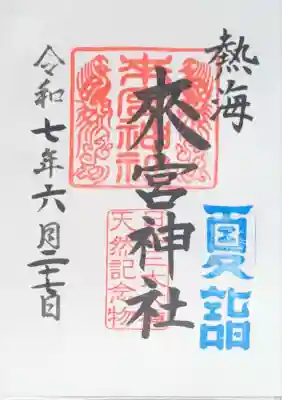 熱海
來宮神社
夏詣
來宮神社
天然記念物
令和七年六月二十七日